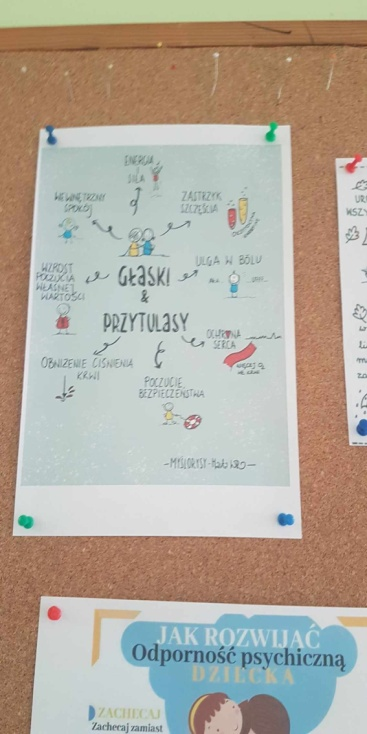 ENERGIA
I
SIŁA
WEWNĘTRZNY
SPOKÓJ
ZASTRZYK
SZCZĘŚCIA
WZROST
POCZUCIA
WŁASNEJ
WARTOŚCI
ULGA W BÓLU
GŁASKI
&
PRZYTULASY
OCHRONA
SERCA
OBNIŻENIE CIŚNIENIA
KRWI
POCZUCIE
BEZPIECZEŃSTWA
-MYŚLORYSY-
UR
WSZY
JAK ROZWIJAĆ
Odporność psychiczną
DZIECKA
ZACHĘCAJ
Zachęcaj zamiast